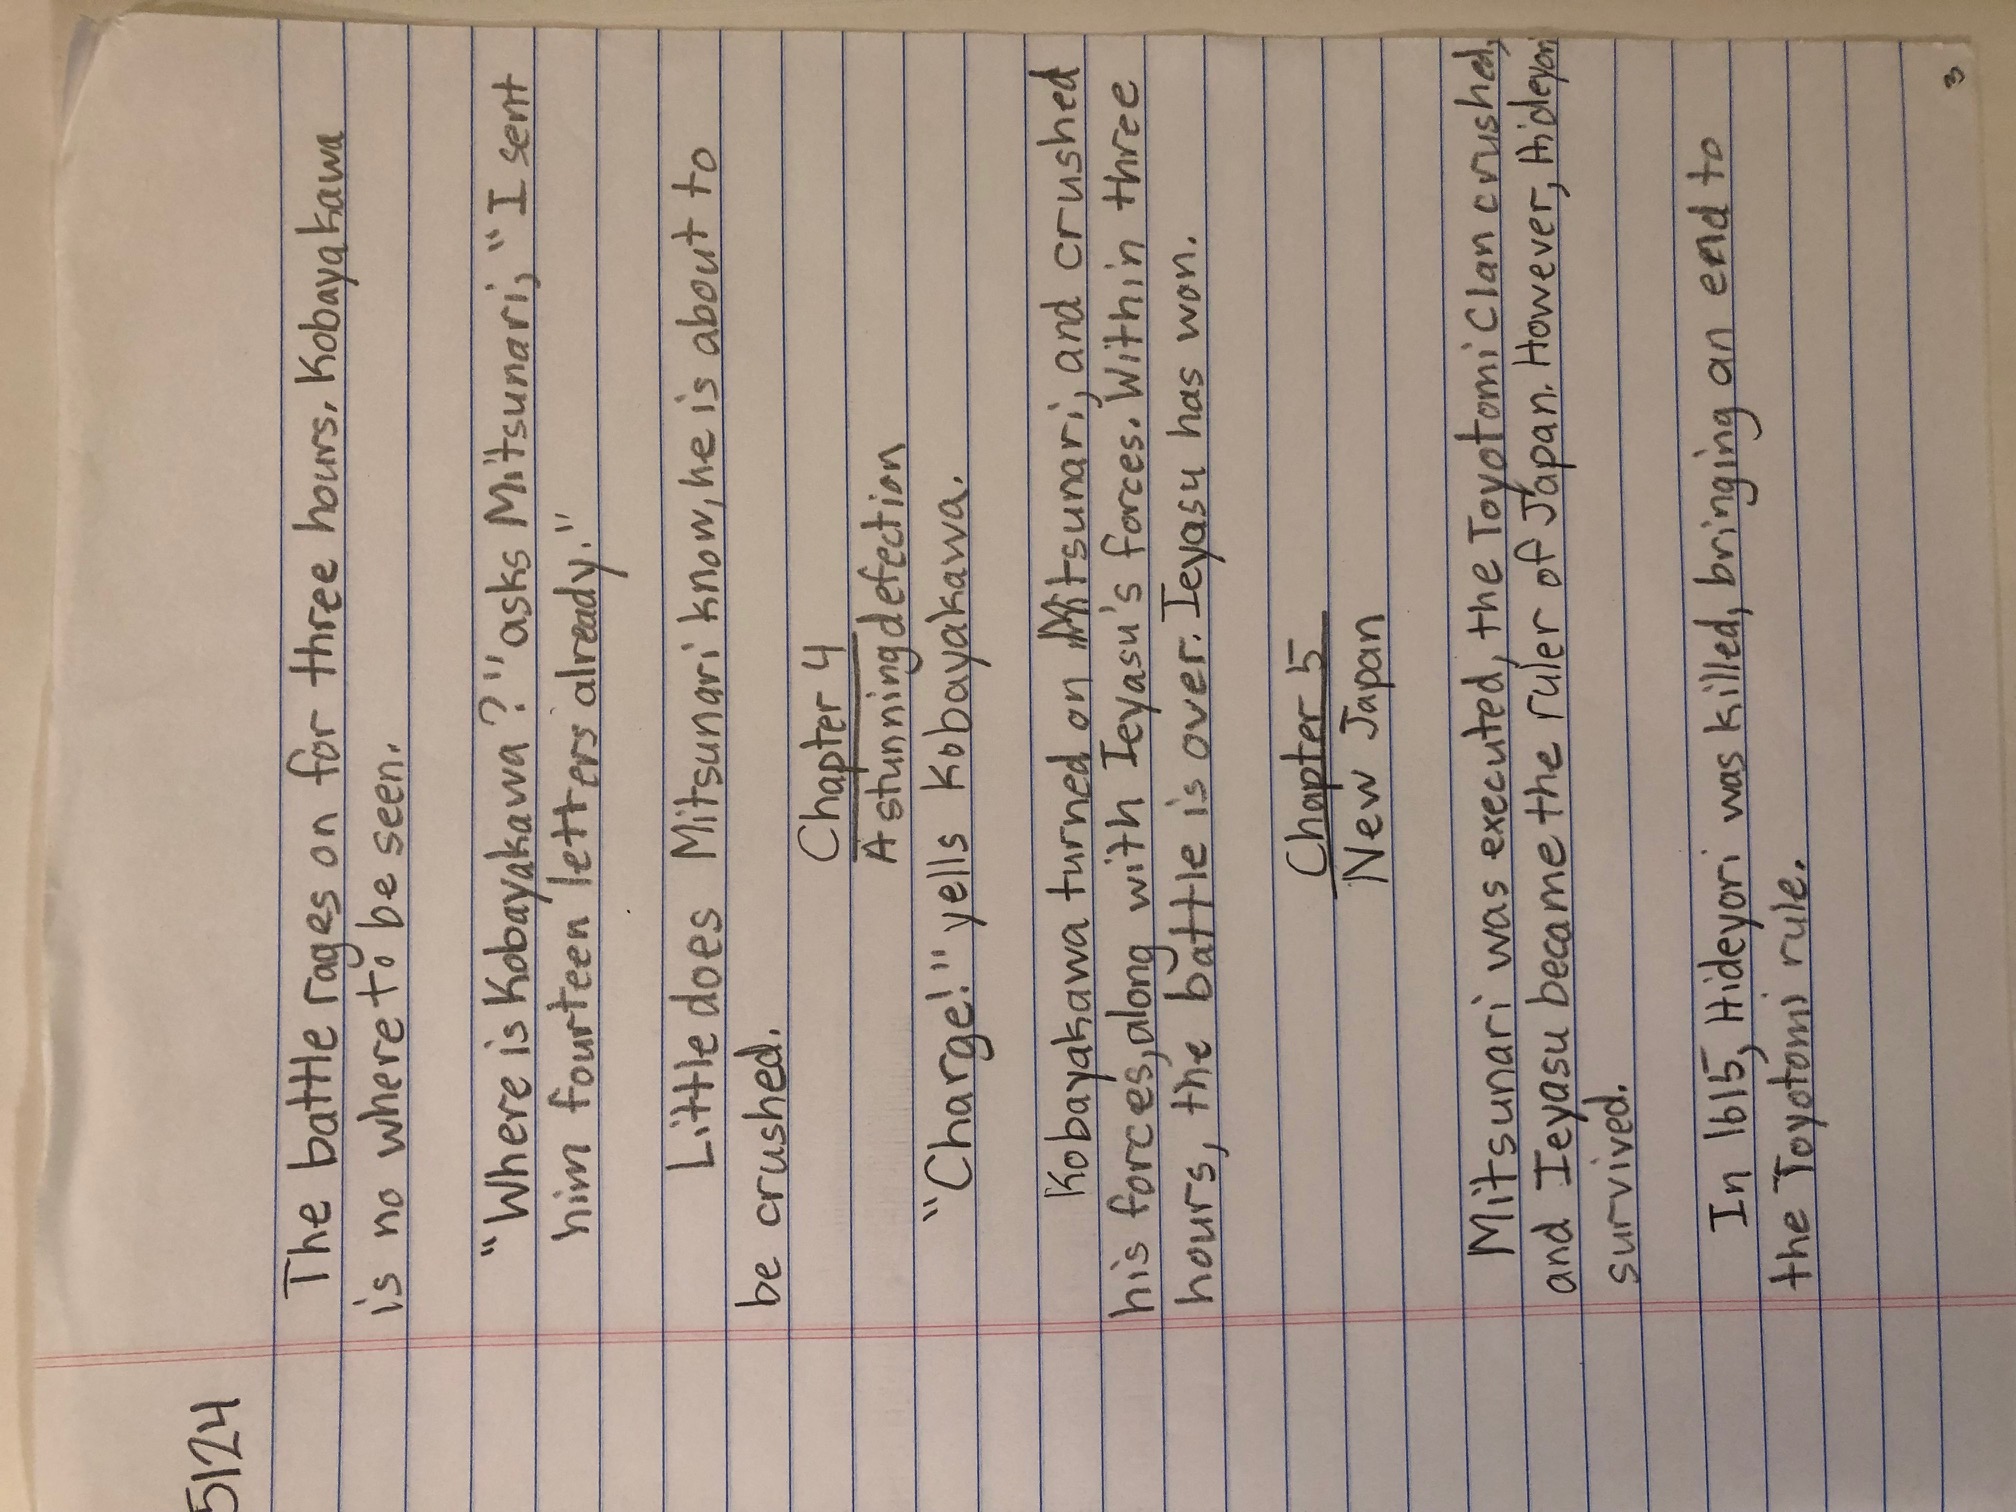 5124
The battle rages on for three hours. Kobayakawa
is no where to be seen.
"Where is Kobayakawa?" asks Mitsunari; "I sent
him fourteen letters already."
Little does Mitsunari know, he is about to
be crushed.
Chapter 4
A stunning defection
"Charge!" yells Kobayakawa.
Kobayakawa turned on Mitsunari, and crushed
his forces, along with Ieyasu's forces. Within three
hours, the battle is over. Ieyasu has won.
Chapter 5
New Japan
Mitsunari was executed, the Toyotomi Clan crushed,
and Ieyasu became the ruler of Japan. However, Hideyori
survived.
In 1615, Hideyori was killed, bringing an end to
the Toyotomi rule.
3